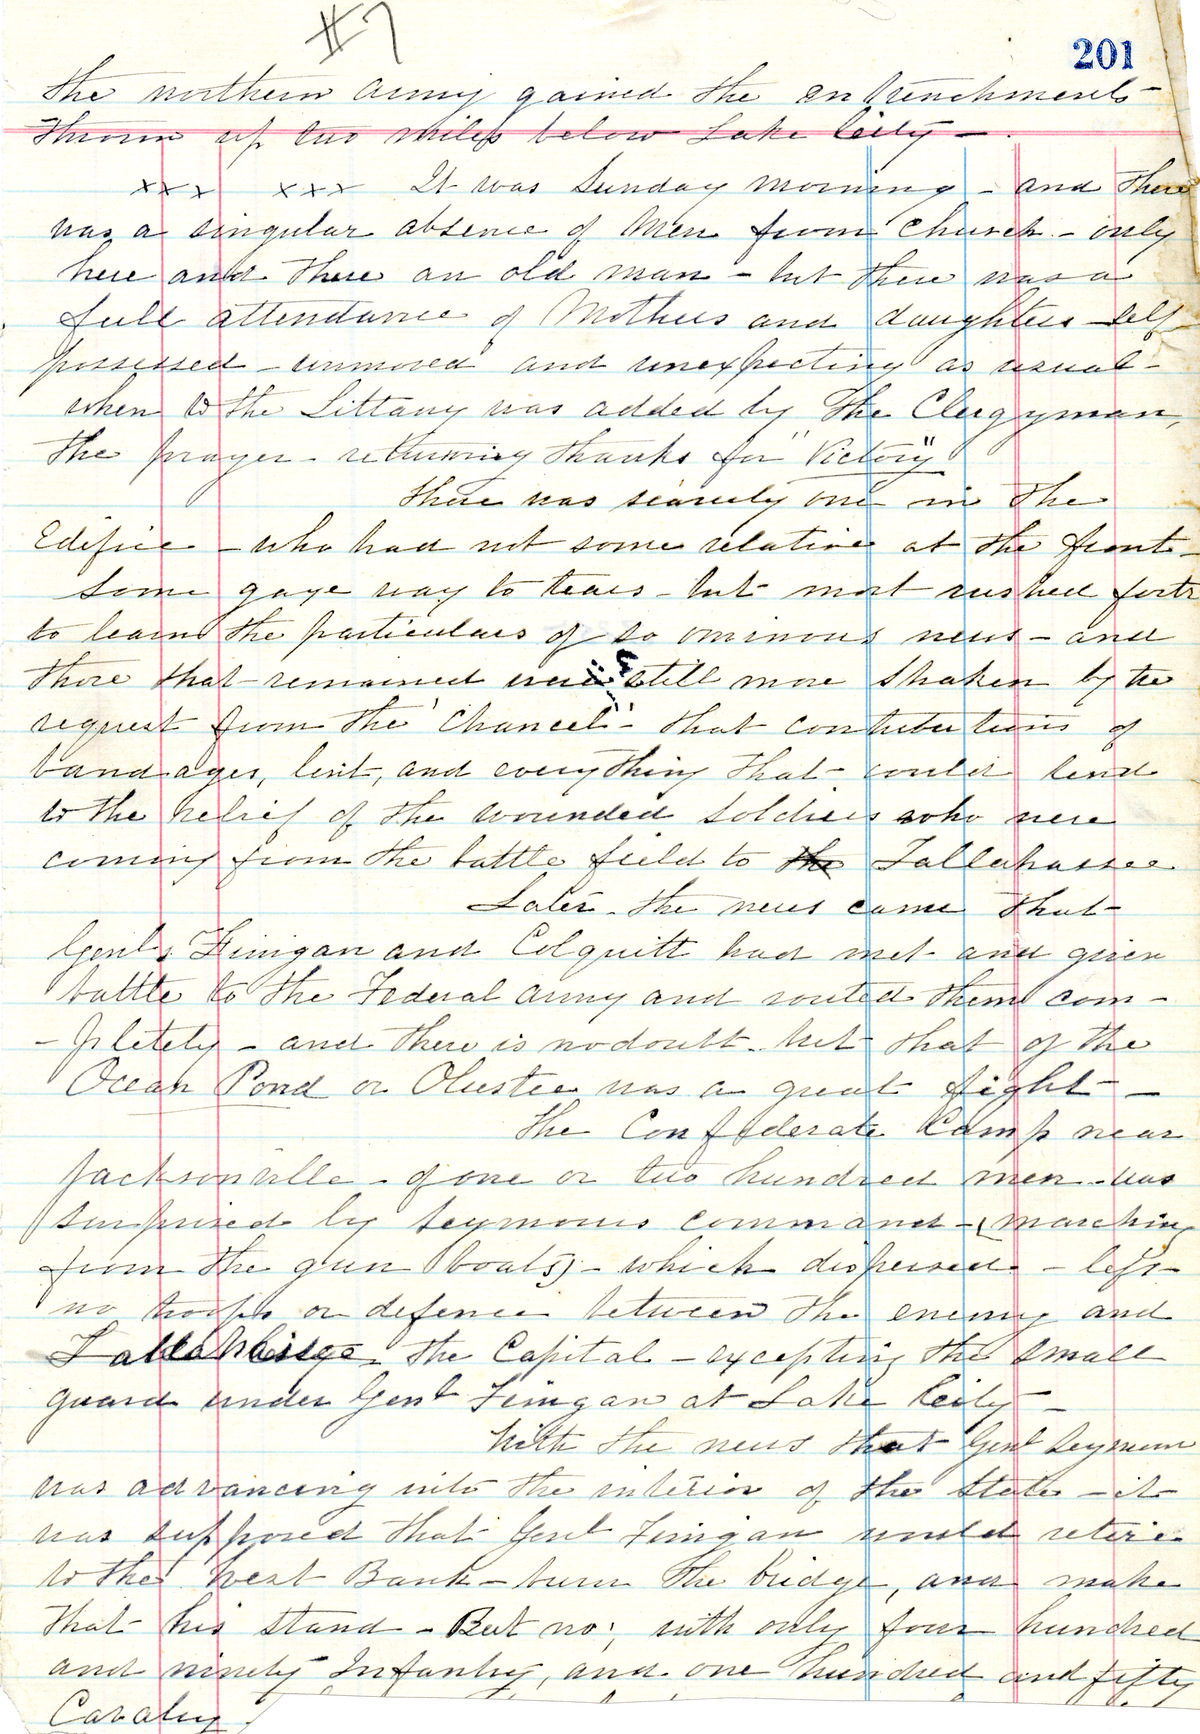 #7
201
the northern army gained the entrenchments -
thrown up two miles below Lake City - .
xxx xxx It was Sunday morning - and there
was a singular absence of Men from Church - only
here and there an old man - but there was a
full attendance of Mothers and daughters - self
possessed - unmoved and unexpecting as usual -
when to the Littany was added by the Clergyman,
the prayer - returning thanks for "Victory"
there was scarcely one in the
Edifice - who had not some relative at the front -
some gave way to tears - but most rushed forth
to learn the particulars of so ominous news - and
those that remained were still more shaken by the
request from the 'Chancel' - that contributions of
bandages, lint, and everything that could tend
to the relief of the wounded soldiers who were
coming from the battle field to Tallahassee
Later - the news came that -
Genls Finigan and Colquitt had met and given
battle to the Federal army and routed them com -
- pletely - and there is no doubt - but that of the
Ocean Pond or Olustee was a great fight -
The Confederate Camp near
Jacksonville - of one or two hundred men - was
surprised by Seymours command - (marching
from the gun boats) - which dispersed - left
no troops or defence between the enemy and
Tallahassee - the Capital - excepting the small
guard under Genl Finigan at Lake City -
With the news that Genl Seymour
was advancing into the interior of the State - it
was supposed that Genl Finigan would retire
to the West Bank - burn the bridge, and make
that his stand - But no; with only four hundred
and ninety Infantry, and one hundred and fifty
Cavalry,